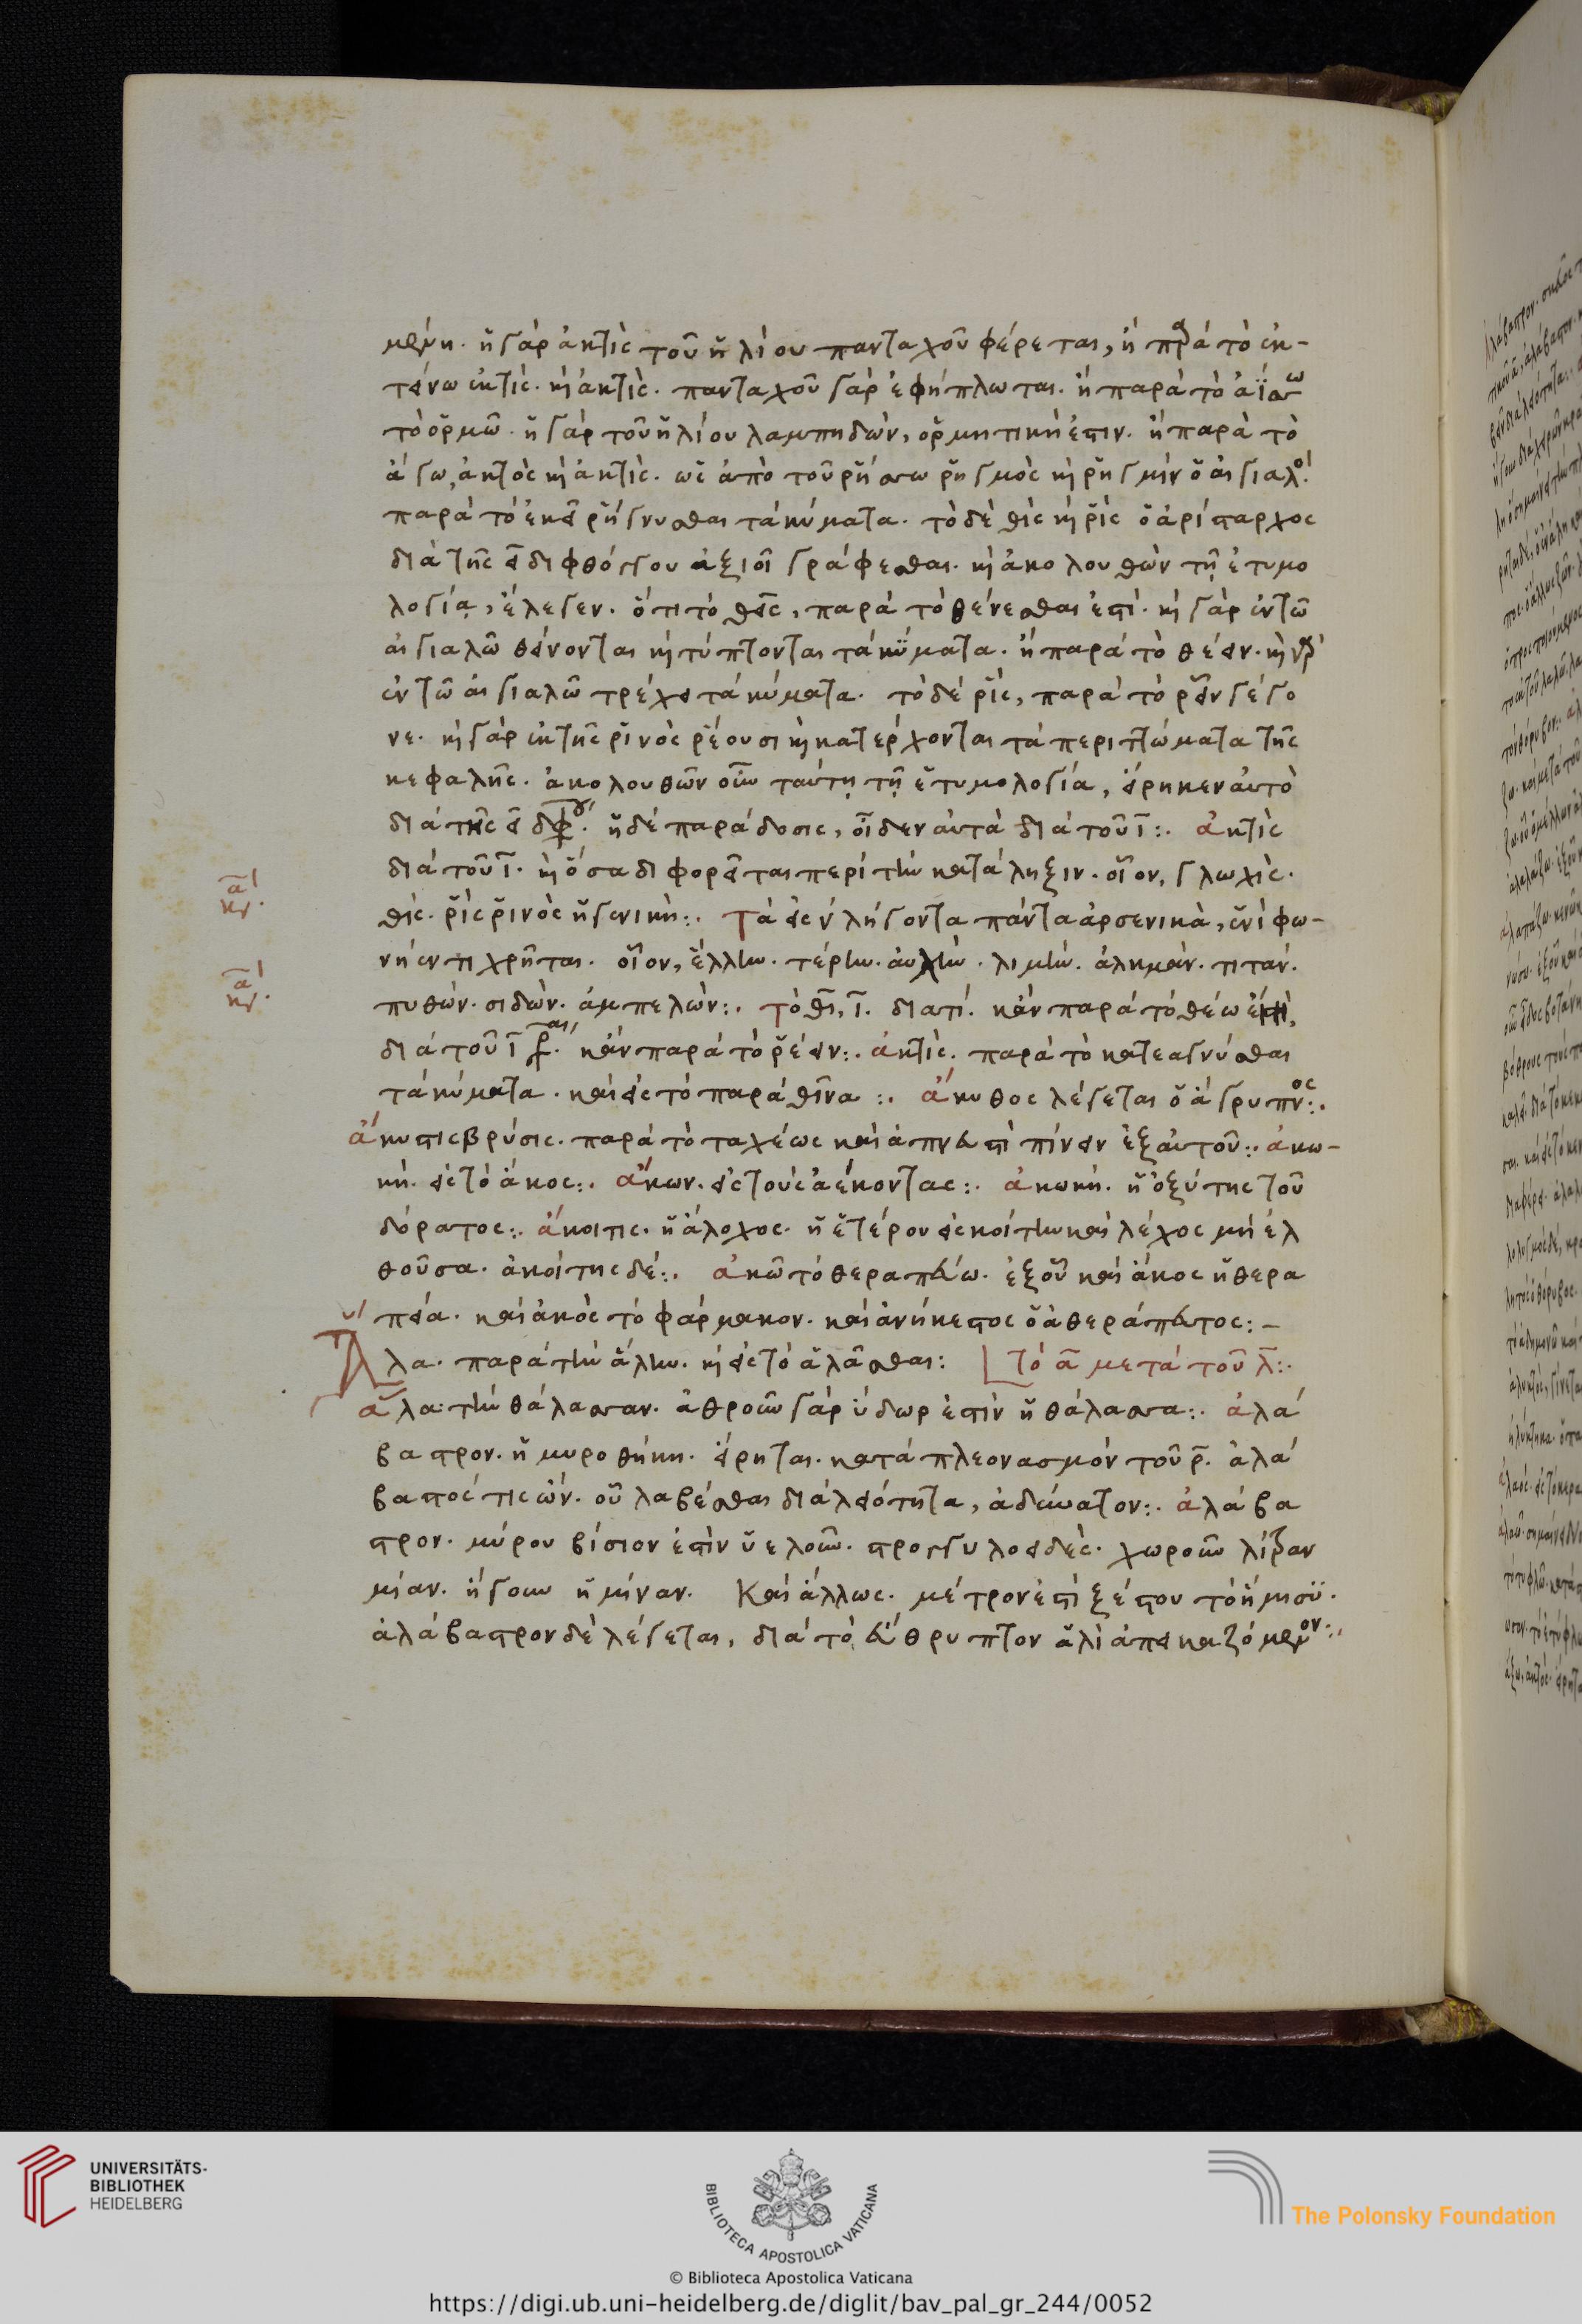 μένη. ἡ γὰρ ἀκτὶς τοῦ ἡλίου πανταχοῦ φέρεται, ἢ παρὰ τὸ ἐκ-
τείνω ἐκτὶς. καὶ ἀκτὶς. πανταχοῦ γὰρ ἐφήπλωται. ἢ παρὰ τὸ ἀΐσσω
τὸ ὁρμῶ. ἡ γὰρ τοῦ ἡλίου λαμπηδὼν, ὁρμητική ἐστιν. ἢ παρὰ τὸ
ἄγω, ἀκτὸς καὶ ἀκτὶς. ὡς ἀπὸ τοῦ ῥήσσω ῥηγμὸς καὶ ῥηγμὶν ὁ αἰγιαλός.
παρὰ τὸ ἐκεῖ ῥήγνυσθαι τὰ κύματα. τὸ δὲ θὶς καὶ ῥὶς ὁ ἀρίσταρχος
διὰ τῆς ει διφθόγγου ἀξιοῖ γράφεσθαι. καὶ ἀκολουθῶν τῇ ἐτυμο
λογίᾳ, ἔλεγεν. ὅτι τὸ θεῖς, παρὰ τὸ θένεσθαι ἐστί. καὶ γὰρ ἐν τῶ
αἰγιαλῶ θείνονται καὶ τύπτονται τὰ κύματα. ἢ παρὰ τὸ θέειν. καὶ γὰρ
ἐν τῶ αἰγιαλῶ τρέχει τὰ κύματα. τὸ δὲ ῥὶς, παρὰ τὸ ῥεῖν γέγο
νε. καὶ γὰρ ἐκ τῆς ῥινὸς ῥέουσι καὶ κατέρχονται τὰ περιττώματα τῆς
κεφαλῆς. ἀκολουθῶν οὖν ταύτῃ τῇ ἐτυμολογία, εἴρηκεν αὐτὸ
διὰ τῆς ει διφθόγγου. ἡ δὲ παράδοσις, οἶδεν αὐτὰ διὰ τοῦ ῑ:. ἀκτὶς
διὰ τοῦ ῑ. καὶ ὅσα διφορεῖται περὶ τὴν κατάληξιν. οἷον, γλωχὶς.
θὶς. ῥὶς ῥινὸς ἡ γενικὴ:. Τὰ εἰς ν λήγοντα πάντα ἀρσενικὰ, ἑνὶ φω-
νήεντι χρῆται. οἷον, ἕλλην. τέρην. αὐχὴν. λιμήν. ἀλκμάν. τιτάν.
πυθών. σιδών. ἀμπελών:. τὸ θῖ, ῑ. διατί. κἂν παρὰ τὸ θέω ἐστὶ,
διὰ τοῦ ῑ γράφεται. κἂν παρὰ τὸ ῥέειν:. ἀκτὶς. παρὰ τὸ κατεαγνύσθαι
τὰ κύματα. καὶ εἰς τὸ παρὰ θῖνα:. ἄκυθος λέγεται ὁ ἄγρυπνος:.
ἄκυστις βρύσις. παρὰ τὸ ταχέως καὶ ἀπνευστὶ πίνειν ἐξ αὐτοῦ:. ἀκω-
κή. εἰς τὸ ἄκος:. ἄκων. εἰς τοὺς ἀέκοντας:. ἀκωκή. ἡ ὀξύτης τοῦ
δόρατος:. ἄκοιτις. ἡ ἄλοχος. ἡ ἑτέρου εἰς κοίτην καὶ λέχος μὴ ἐλ
θοῦσα. ἀκοίτης δέ:. ἀκῶ τὸ θεραπεύω. ἐξ οὗ καὶ ἄκος ἡ θερα
πεία. καὶ ἀκὸς τὸ φάρμακον. καὶ ἀνήκεστος ὁ ἀθεράπευτος:-
Ἄλα. παρὰ τὴν ἅλην. καὶ εἰς τὸ ἀλᾶσθαι: Τὸ ᾱ μετὰ τοῦ λ̄:.
ἅλα: τὴν θάλασσαν. ἀθροῦν γὰρ ὕδωρ ἐστὶν ἡ θάλασσα:. ἀλά
βαστρον. ἡ μυροθήκη. εἴρηται. κατὰ πλεονασμὸν τοῦ ρ̄. ἀλά
βαστός τις ὢν. οὗ λαβέσθαι διὰ λειότητα, ἀδύνατον:. ἀλάβα
στρον. μύρου βίσιον ἐστὶν ὑελοῦν. στρογγυλοειδὲς. χωροῦν λίτραν
μίαν. ἤγουν ἡμίναν. Καὶ ἄλλως. μέτρον ἐστὶ ξέστου τὸ ἥμισυ.
ἀλάβαστρον δὲ λέγεται, διὰ τὸ εὔθρυπτον ἁλὶ ἀπεικαζόμενον:.
ᾱ
κγ.
ᾱ
κγ.
UNIVERSITÄTS-
BIBLIOTHEK
HEIDELBERG
BIBLIOTECA APOSTOLICA VATICANA
The Polonsky Foundation
© Biblioteca Apostolica Vaticana
https://digi.ub.uni-heidelberg.de/diglit/bav_pal_gr_244/0052